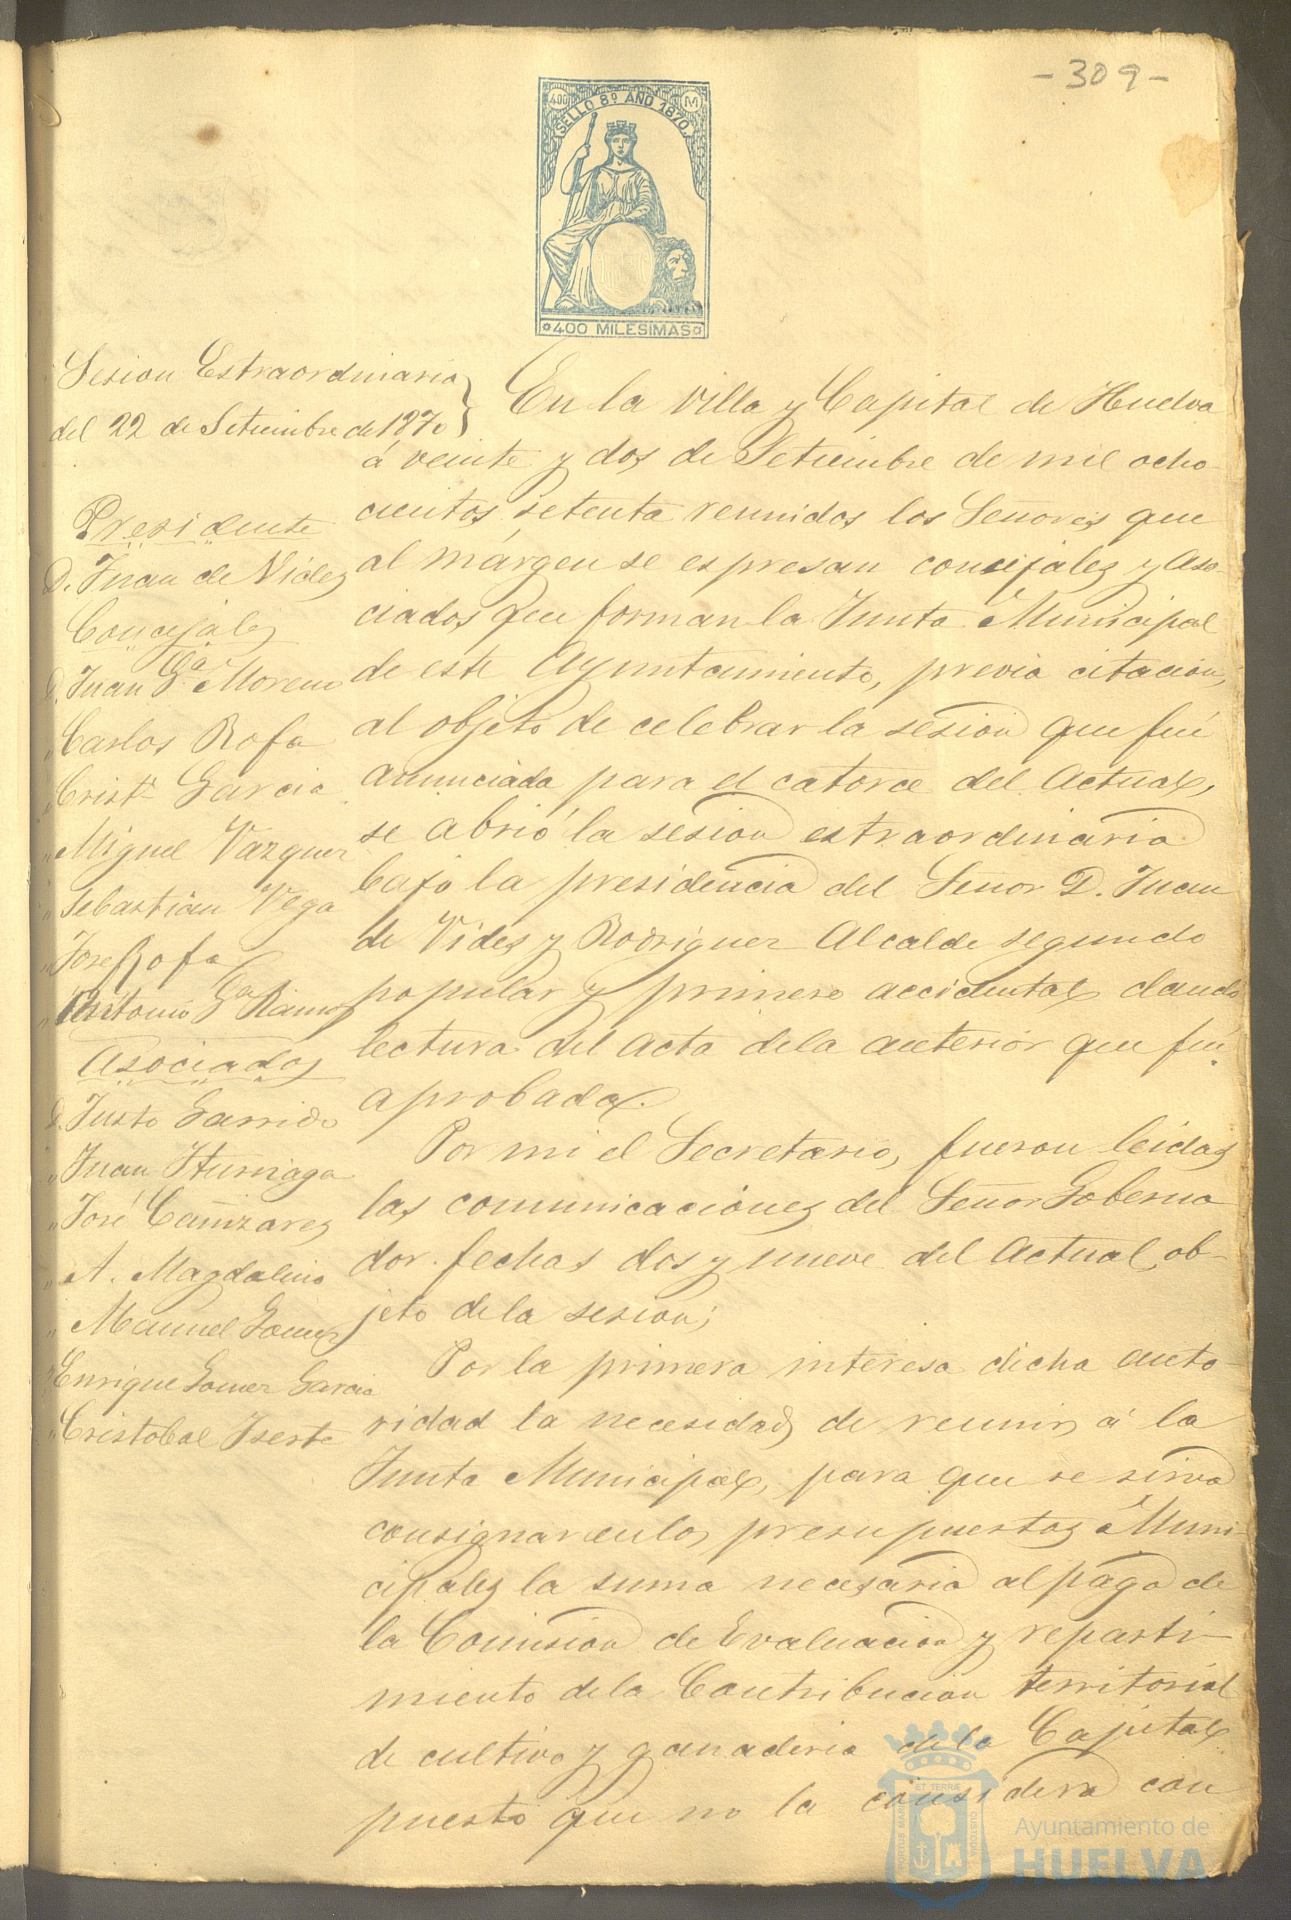 - 309 -
400 M
SELLO 8º AÑO 1870.
400 MILESIMAS
Sesion Estraordinaria
del 22 de Setiembre de 1870
Presidente
D. Juan de Vides
Concejales
D. Juan Gª Moreno
" Carlos Rofa
" Cristl Garcia
" Miguel Vazquez
" Sebastian Vega
" Jose Rofa
" Antonio Gª Ramos
Asociados
D. Justo Garrido
" Juan Iturriaga
" José Cañizares
" A. Magdalino
" Manuel Gomez
" Enrique Gomez Garcia
" Cristobal Iserte
En la Villa y Capital de Huelva
á veinte y dos de Setiembre de mil ocho
cientos setenta reunidos los Señores que
al márgen se espresan concejales y Aso-
ciados que forman la Junta Municipal
de este Ayuntamiento, previa citacion,
al objeto de celebrar la sesion que fué
anunciada para el catorce del Actual,
se abrió la sesion estraordinaria
bajo la presidencia del Señor D. Juan
de Vides y Rodriguez Alcalde segundo
popular y primero accidental dando
lectura del acta dela anterior que fué
aprobada.
Por mi el Secretario, fueron leidas
las comunicaciones del Señor Goberna
dor fechas dos y nueve del Actual, ob-
jeto dela sesion;
Por la primera interesa dicha auto-
ridad la necesidad de reunir á la
Junta Municipal, para que se sirva
consignar enlos presupuestos Muni-
cipales la suma necesaria al pago de
la Comision de Evaluacion y reparti-
miento dela Contribucion territorial
de cultivo y ganaderia de la Capital
puesto que no la considera con
Ayuntamiento de
HUELVA